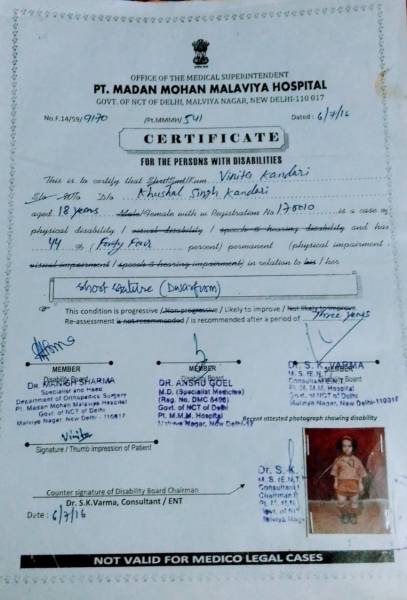 OFFICE OF THE MEDICAL SUPERINTENDENT
PT. MADAN MOHAN MALAVIYA HOSPITAL
GOVT. OF NCT OF DELHI, MALVIYA NAGAR, NEW DELHI-110 017
No.F.14/59/9170 /Pt.MMMH/541 Dated: 6/7/16
CERTIFICATE
FOR THE PERSONS WITH DISABILITIES
This is to certify that Shri/Smt/Kum Vinita Kandari
S/o W/o D/o Khushal Singh Kandari
aged 18 years Male/Female with Registration No 178010 is a case of
physical disability / visual disability / speech & hearing disability and has
44 % (Forty Four percent) permanent (physical impairment
visual impairment / speech & hearing impairment) in relation to his / her
Short stature (Dwarfism)
This condition is progressive / Non progressive / Likely to improve / Not likely to improve
Re-assessment is not recommended / is recommended after a period of Three years
MEMBER
Disability Board
DR. MANISH SHARMA
Specialist and Head
Department of Orthopedics Surgery
Pt. Madan Mohan Malaviya Hospital
Govt. of NCT of Delhi
Malviya Nagar, New Delhi-110017
MEMBER
Disability Board
DR. ANSHU GOEL
M.D. (Specialist Medicine)
(Reg. No. DMC 8496)
Govt. of NCT of Delhi
Pt. M.M.M. Hospital
Malviya Nagar, New Delhi-17
Dr. S. K. VARMA
MEMBER
M. S. (E.N.T.
Disability Board
Consultant
Pt. M. M. M. Hospital
Govt. of NCT of Delhi
Malviya Nagar, New Delhi-110017
Recent attested photograph showing disability
Vinita
Signature / Thumb impression of Patient
Dr. S. K.
M. S. (E.N.T
Consultant
Chairman
Pt. M. M.
Govt. of
Malviya Nagar
Counter signature of Disability Board Chairman
Dr. S.K.Varma, Consultant / ENT
Date : 6/7/16
NOT VALID FOR MEDICO LEGAL CASES